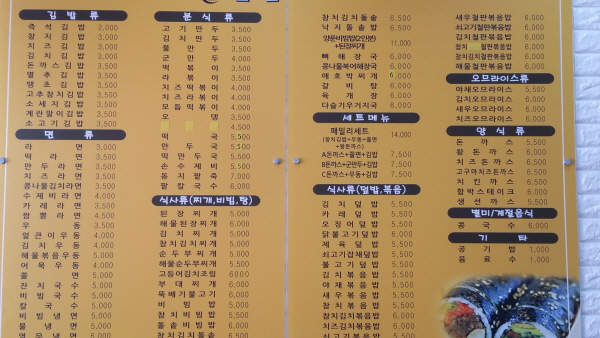 김밥류
즉석김밥 2,000
참치김밥 3,000
치즈김밥 3,000
김치김밥 3,000
돈까스김밥 3,500
멸추김밥 3,000
땡초김밥 3,000
고추참치김밥 3,500
소세지김밥 3,000
계란말이김밥 3,500
소고기김밥 3,500
면류
라면 3,000
떡라면 3,500
만두라면 3,500
치즈라면 3,500
콩나물김치라면 3,500
수제비라면 4,000
카레라면 3,500
짬뽕라면 4,500
우동 3,500
얼큰이우동 4,000
김치우동 4,000
해물볶음우동 5,000
어묵우동 4,000
쫄면 4,500
잔치국수 5,000
비빔국수 5,000
칼국수 5,000
비빔냉면 5,000
물냉면 5,000
열무냉면 6,000
분식류
고기만두 3,500
김치만두 3,500
물만두 3,500
군만두 4,000
떡볶이 3,500
라볶이 4,000
치즈떡볶이 4,000
치즈라볶이 4,000
모듬떡볶이 4,000
오뎅 3,500
4,500
떡국 5,500
만두국 5,500
떡만두국 5,500
손수제비 5,500
동지팥죽 7,000
팥칼국수 6,000
식사류(찌개,비빔,탕)
된장찌개 5,000
해물된장찌개 6,000
김치찌개 5,500
참치김치찌개 5,500
순두부찌개 5,500
해물순두부찌개 5,500
고등어김치조림 6000
부대찌개 6,000
뚝배기불고기 6,000
비빔밥 5,000
참치비빔밥 5,500
돌솥비빔밥 6,000
참치김치돌솥 6,500
참치김치돌솥 6,500
낙지돌솥밥 6,500
양푼비빔밥(2인분)
+된장찌개 11,000
뼈해장국 6,000
콩나물북어해장국 6,000
애호박찌개 6
갈비탕 6,000
육개장 6,000
다슬기우거지국 6,000
세트메뉴
패밀리세트 14,000
(참치김밥+우동+쫄면
+왕돈까스)
A돈까스+쫄면+김밥 7,500
B돈까스+군만두+김밥 7,500
C돈까스+우동+김밥 7,500
식사류(덮밥,볶음)
김치덮밥 5,500
카레덮밥 5,500
오징어덮밥 5,500
닭불고기덮밥 6,000
제육덮밥 5,500
쇠고기잡채덮밥 5,500
불고기덮밥 5,500
김치볶음밥 5,500
야채볶음밥 5,500
새우볶음밥 5,500
참치볶음밥 5,500
참치김치볶음밥 6,000
치즈김치볶음밥 6,000
쇠고기볶음밥 5,500
새우철판볶음밥 6,000
쇠고기철판볶음밥 6,000
김치철판볶음밥 6,000
참치철판볶음밥 6,000
참치김치철판볶음밥 6,000
해물철판볶음밥 6,000
오므라이스류
야채오므라이스 5,500
김치오므라이스 6,000
새우오므라이스 6,000
치즈오므라이스 6,000
양식류
돈까스 5,500
왕돈까스 6,000
치즈돈까스 6,500
고구마치즈돈까스 6,500
치킨까스 6,500
함박스테이크 6,000
생선까스 5,500
별미/계절음식
콩국수 6,000
기타
공기밥 1,000
음료수 1,000